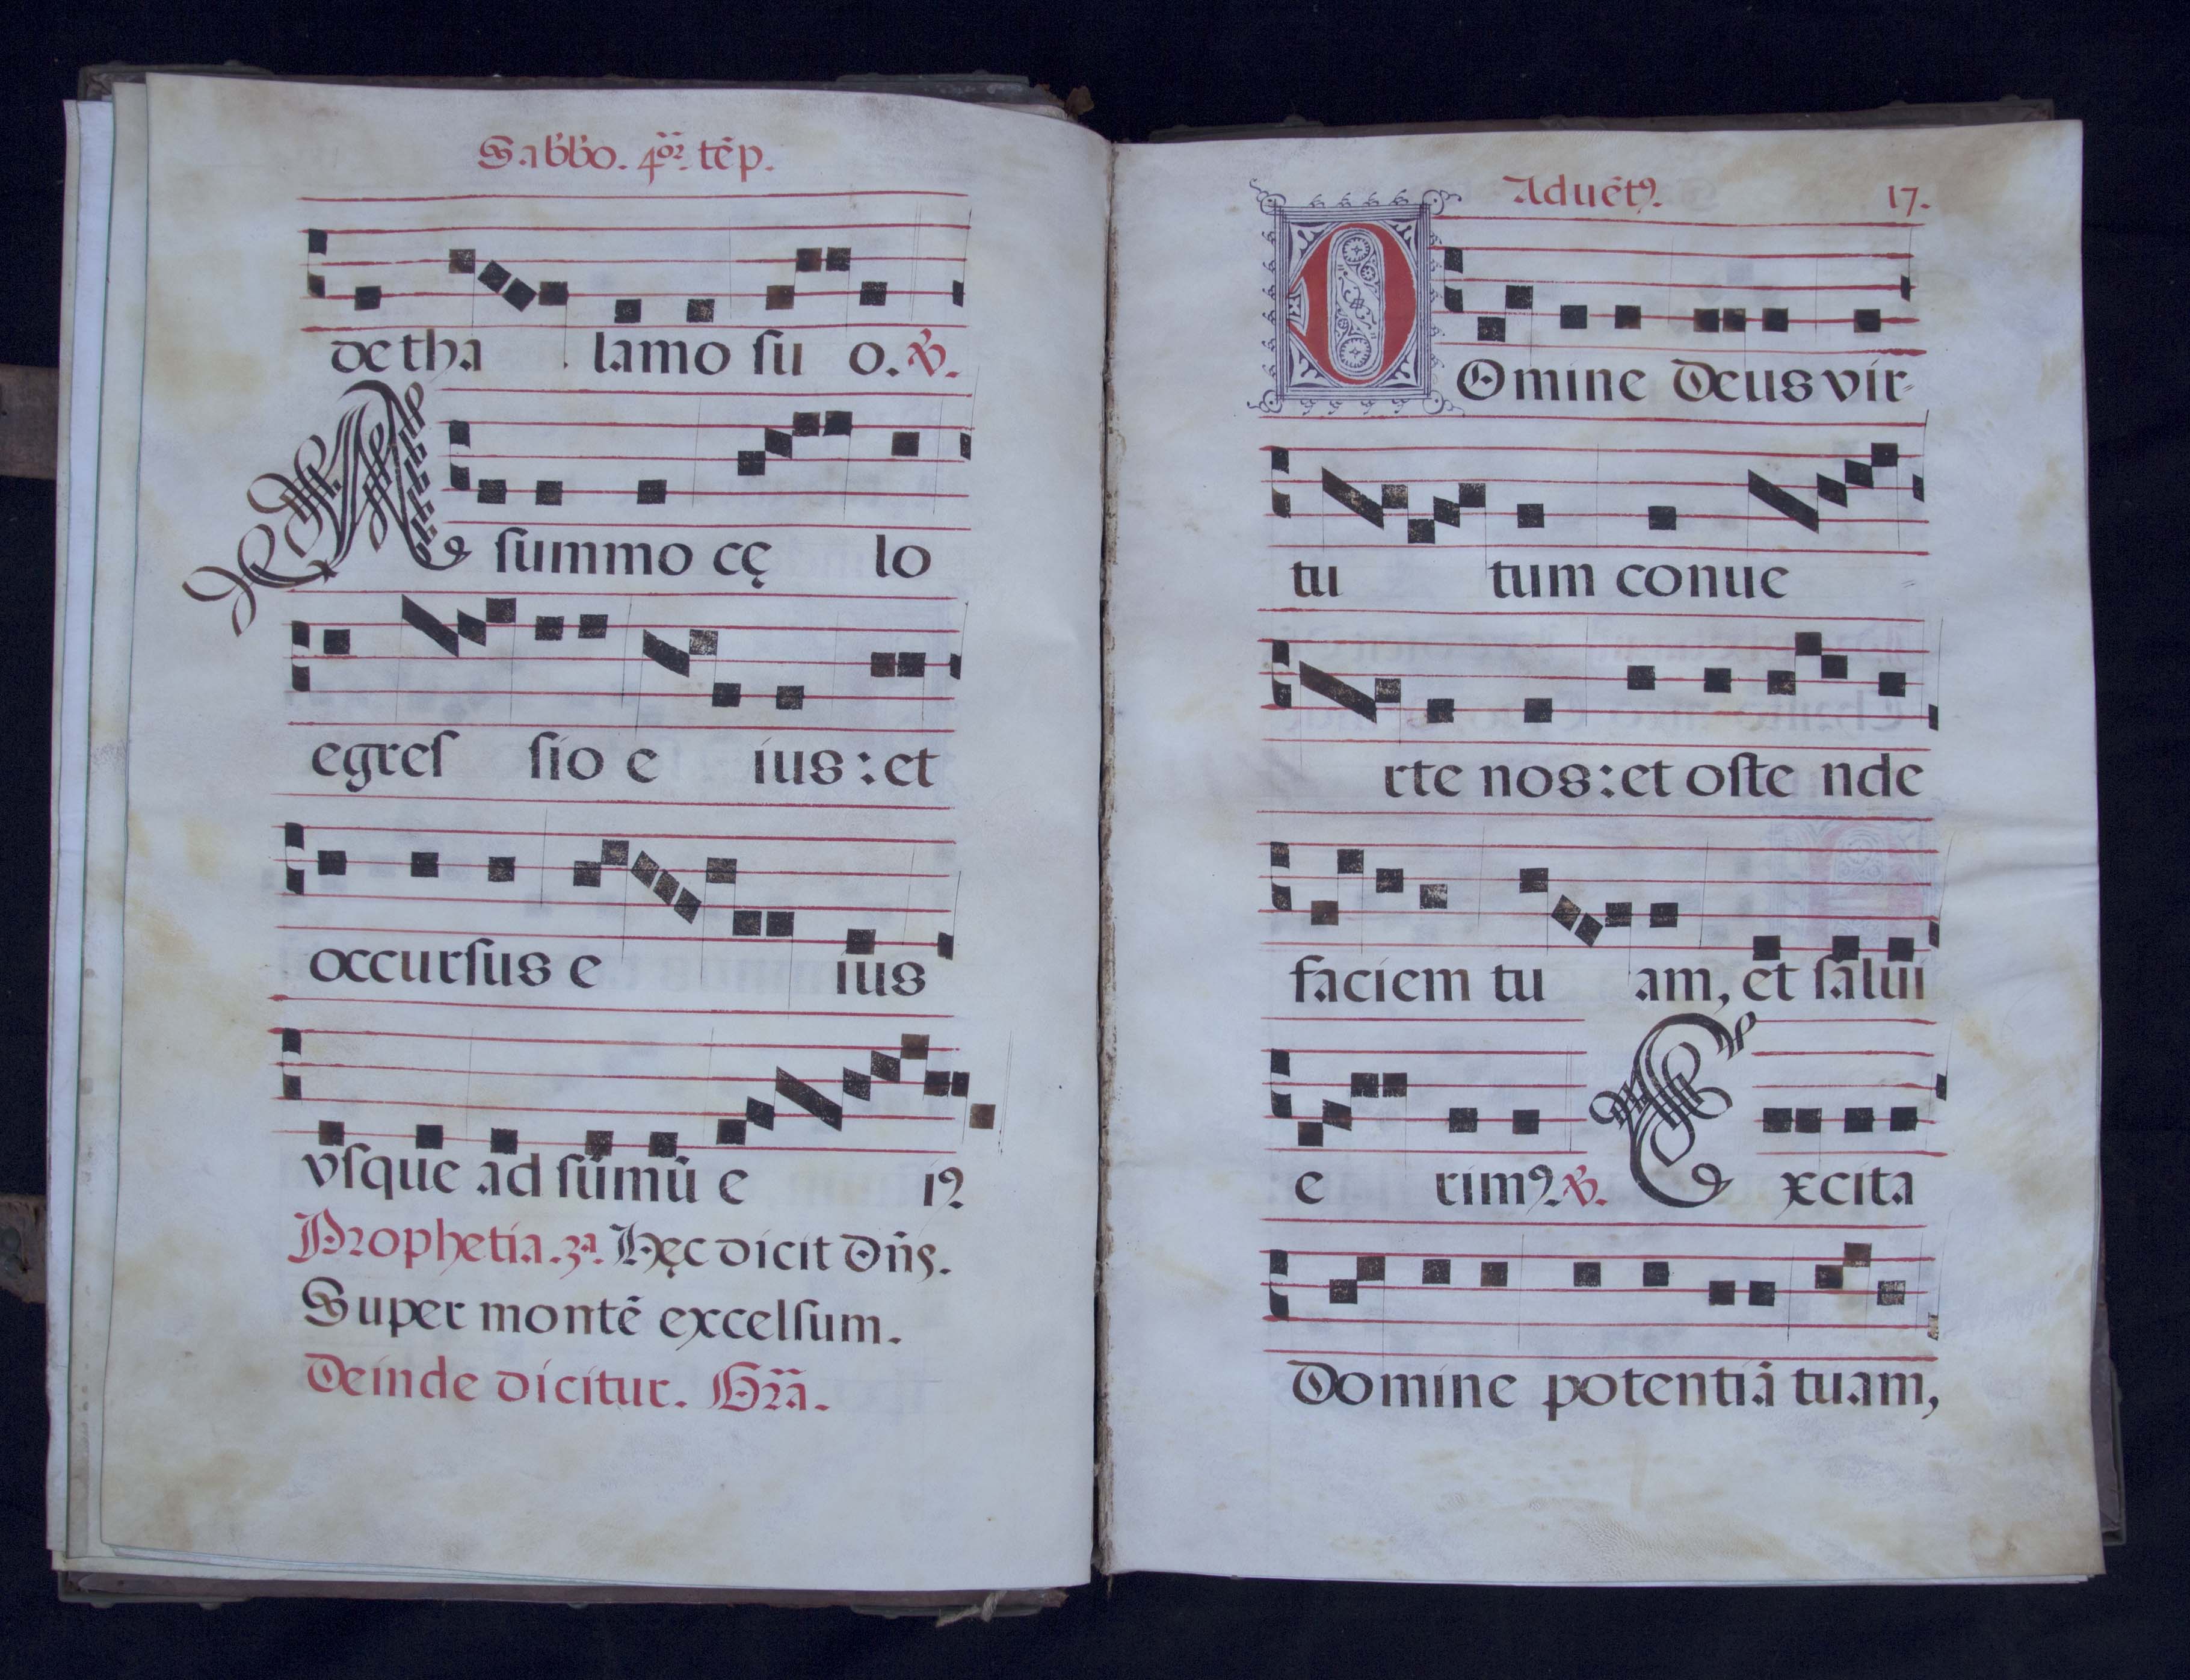 Sabbo. 4or. tẽp.
de tha lamo ſu o. ℣.
A ſummo cę lo
egreſ ſio e ius : et
occurſus e ius
vſque ad ſũmũ e iꝰ
Prophetia. 3ª. Hęc dicit Dñs.
Super montẽ excelſum.
Deinde dicitur. Orã.
Aduẽtꝰ. 17.
DOmine Deus vir-
tu tum conue
rte nos : et oſte nde
faciem tu am, et ſalui
e rimꝰ. ℣. Excita
Domine potentiã tuam,